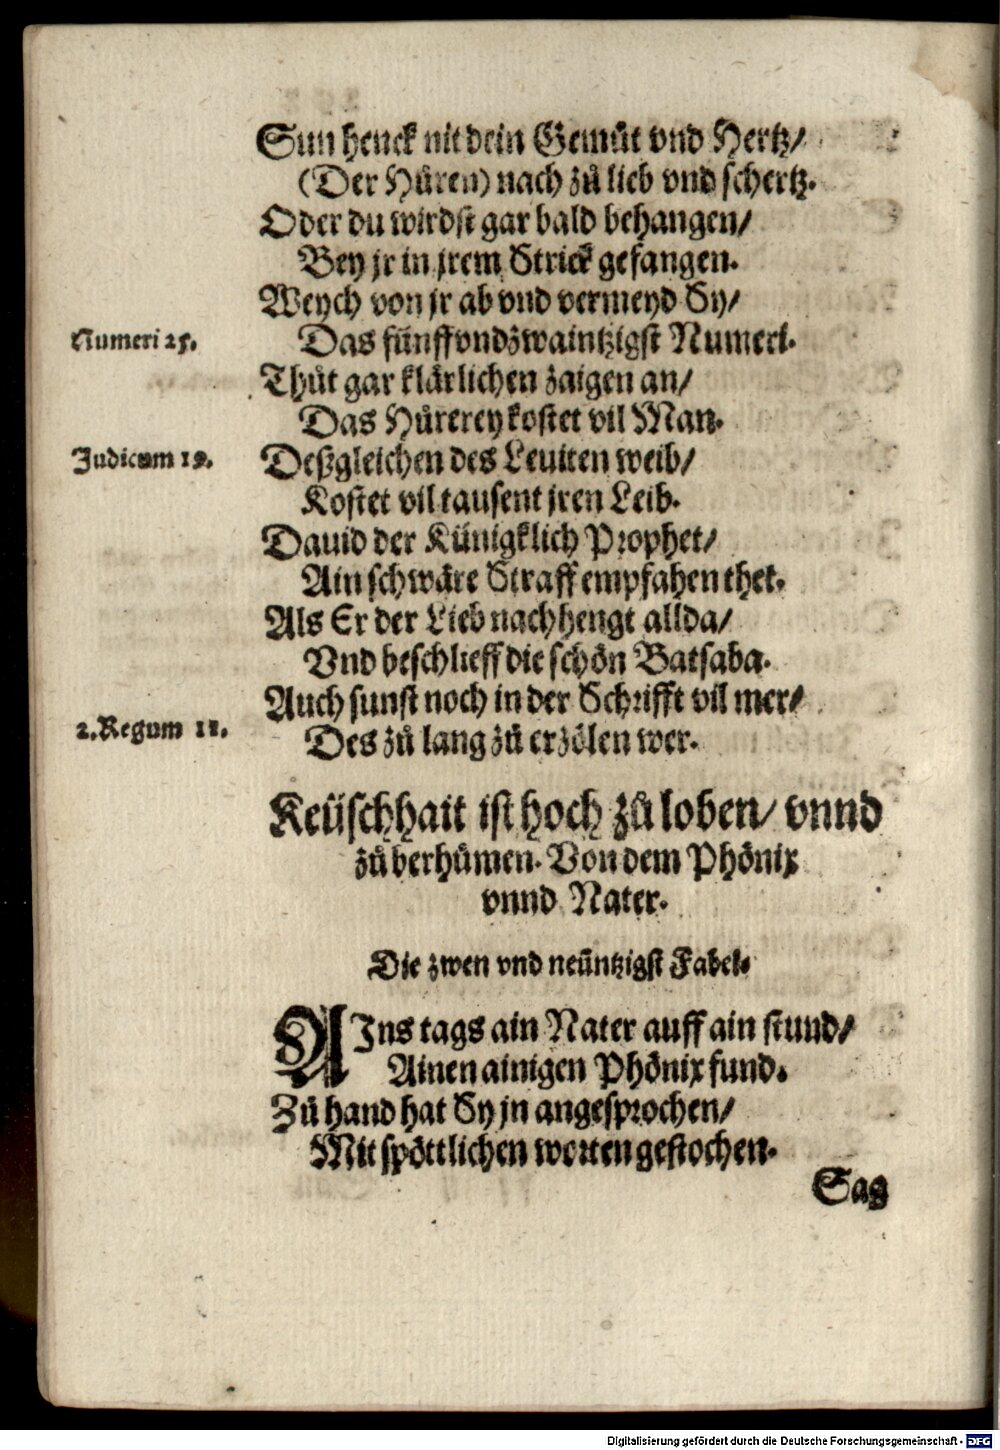 Sun henck nit dein Gemüt vnd Hertz/
(Der Hůren) nach zů lieb vnd schertz.
Oder du wirdst gar bald behangen/
Bey jr in jrem Strick gefangen.
Weych von jr ab vnd vermeyd Sy/
Numeri 25.
Das fünffvndzwaintzigst Numeri.
Thůt gar klärlichen zaigen an/
Das Hůrerey kostet vil Man.
Judicum 19.
Deßgleichen des Leuiten weib/
Kostet vil tausent jren Leib.
Dauid der Künigklich Prophet/
Ain schwäre Straff empfahen thet.
Als Er der Lieb nachhengt allda/
Vnd beschlieff die schön Batsaba.
Auch sunst noch in der Schrifft vil mer/
2. Regum 11.
Des zů lang zů erzölen wer.
Keüschhait ist hoch zů loben/ vnnd
zů berhůmen. Von dem Phönix
vnnd Nater.
Die zwen vnd neüntzigst Fabel.
AIns tags ain Nater auff ain stund/
Ainen ainigen Phönix fund.
Zů hand hat Sy jn angesprochen/
Mit spöttlichen worten gestochen.
Sag
Digitalisierung gefördert durch die Deutsche Forschungsgemeinschaft - DFG